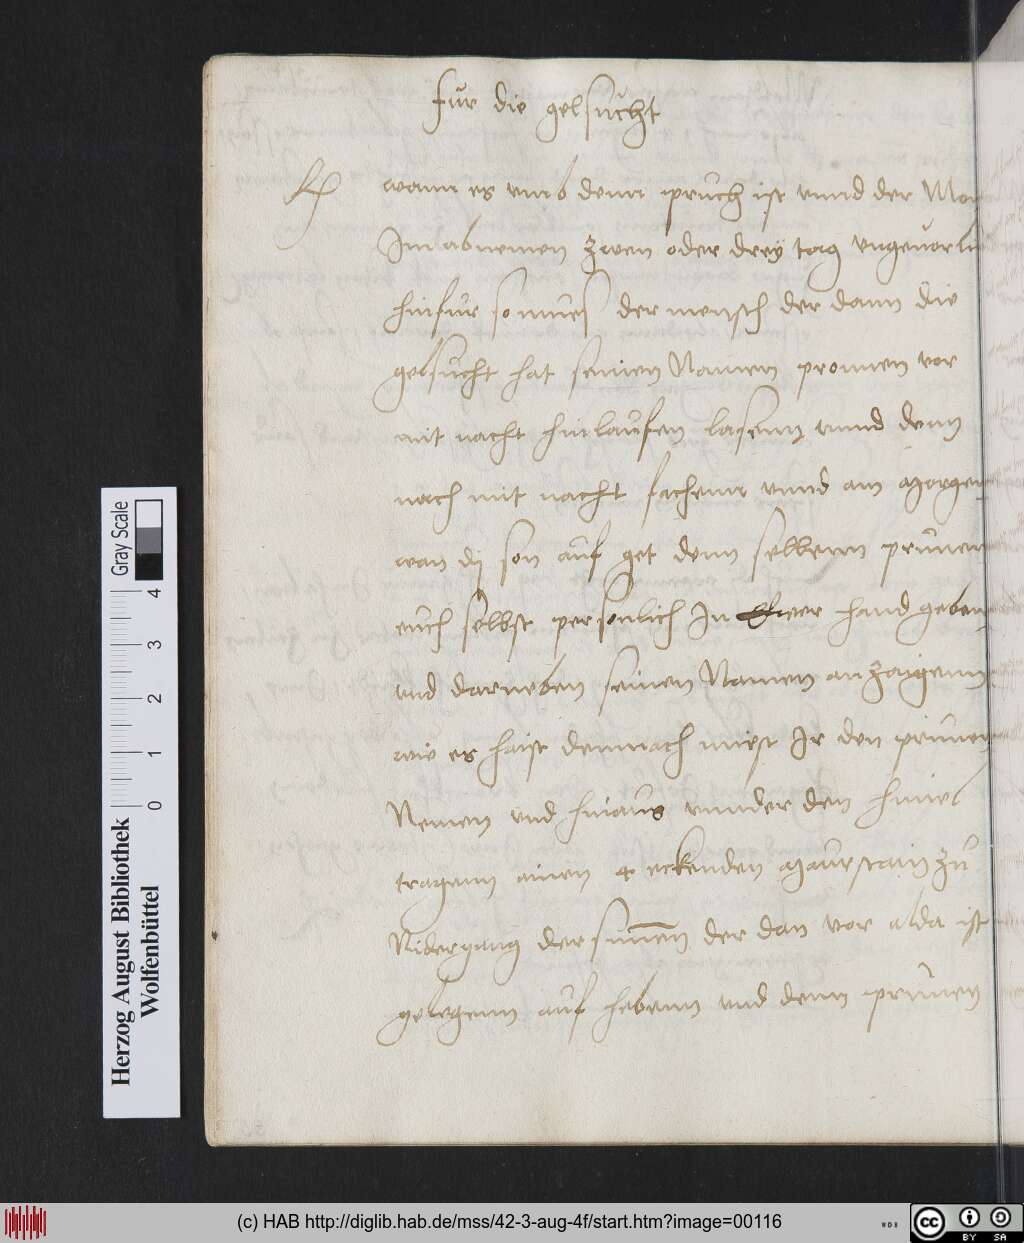 für die gelsucht
wann es vmb denn pruch ist vnnd der Mon
Im abnemen zwen oder drey tag vngevorli
hinfür so mües der mensch der dann die
gelsucht hat seinen Namen pronnen vor
mit nacht hin laüfen lasenn vnnd denn
nach mit nacht fachenn vnnd am morgen
wan dj son aüf get denn selbenn prunen
eüch selbst personlich In ewer hand geben
vnd darneben seinen Namen anzaigenn
wie es haist dennach miest Ir den prünen
Nemen vnd hinaus vnnder den himel
tragenn ainen 4 eckenden maurstain zu
Nidergang der sunnen der dan vor alda ist
gelegenn aüf hebenn vnd denn prünen
Gray Scale
4
3
2
1
0
Herzog August Bibliothek
Wolfenbüttel
(c) HAB http://diglib.hab.de/mss/42-3-aug-4f/start.htm?image=00116
WDB
cc
BY SA